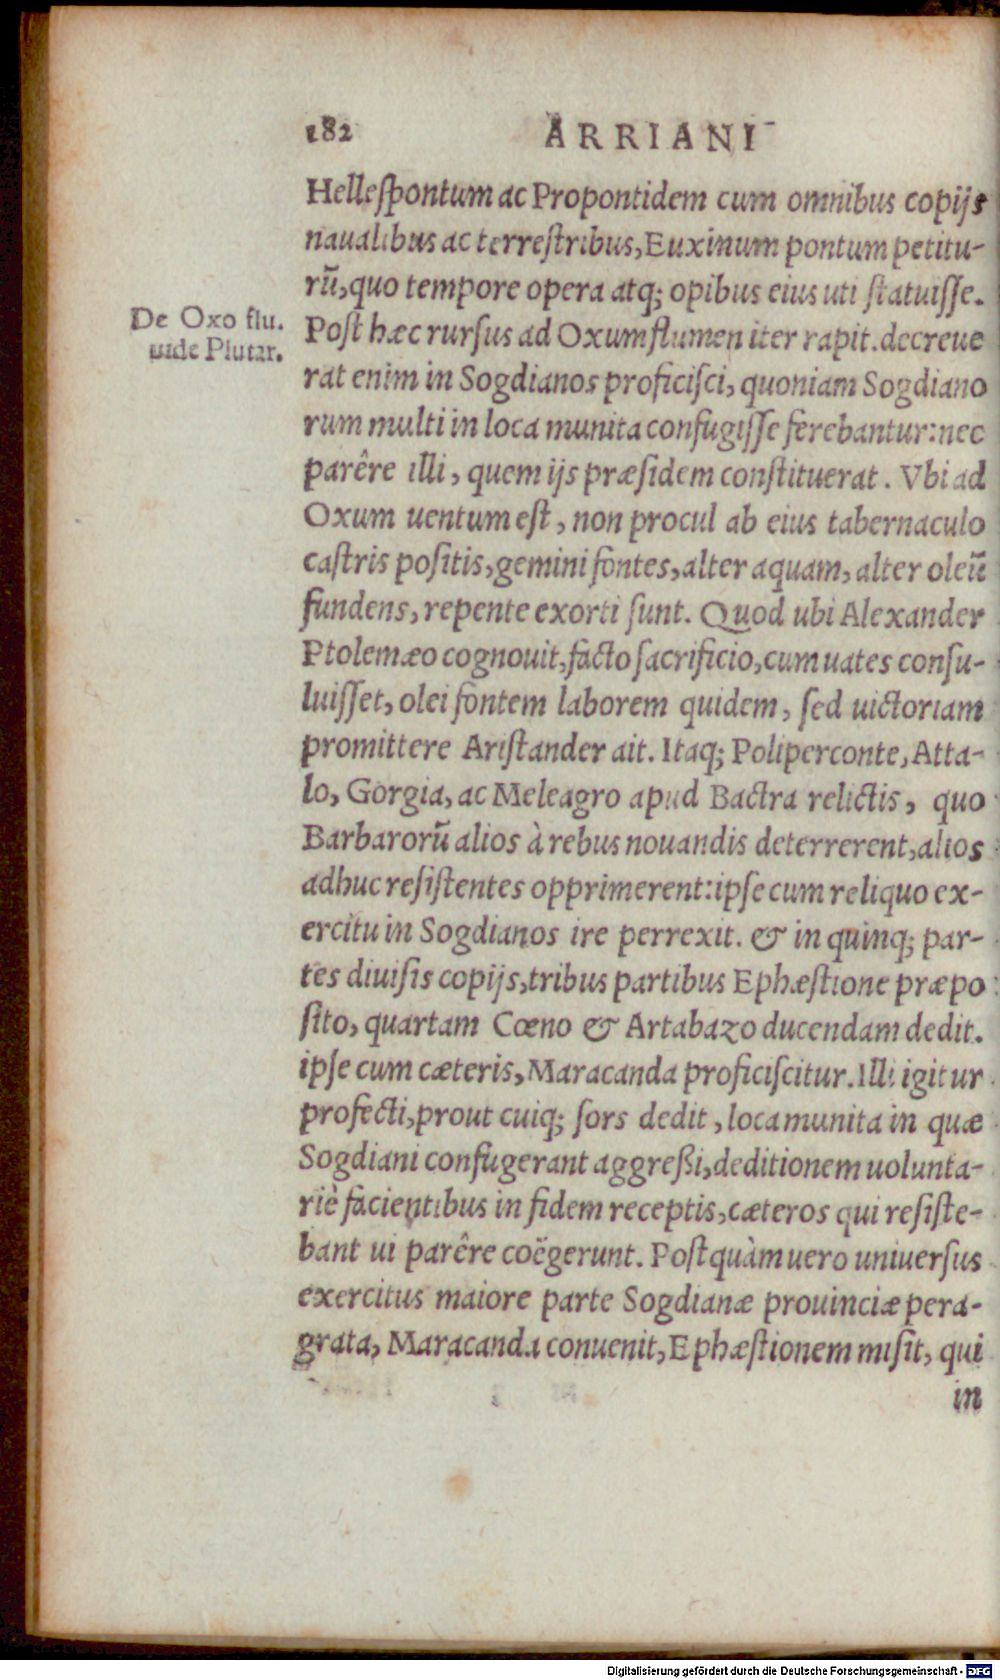 182 ARRIANI
Hellespontum ac Propontidem cum omnibus copijs
naualibus ac terrestribus, Euxinum pontum petitu-
rũ, quo tempore opera atq; opibus eius uti statuisse.
De Oxo flu.
uide Plutar.
Post hæc rursus ad Oxum flumen iter rapit. decreue
rat enim in Sogdianos proficisci, quoniam Sogdiano
rum multi in loca munita confugisse ferebantur: nec
parêre illi, quem ijs præsidem constituerat. Vbi ad
Oxum uentum est, non procul ab eius tabernaculo
castris positis, gemini fontes, alter aquam, alter oleũ
fundens, repente exorti sunt. Quod ubi Alexander
Ptolemæo cognouit, facto sacrificio, cum uates consu-
luisset, olei fontem laborem quidem, sed uictoriam
promittere Aristander ait. Itaq; Poliperconte, Atta-
lo, Gorgia, ac Meleagro apud Bactra relictis, quo
Barbarorũ alios à rebus nouandis deterrerent, alios
adhuc resistentes opprimerent: ipse cum reliquo ex-
ercitu in Sogdianos ire perrexit. & in quinq; par-
tes diuisis copijs, tribus partibus Ephæstione præpo
sito, quartam Cœno & Artabazo ducendam dedit.
ipse cum cæteris, Maracanda proficiscitur. Illi igitur
profecti, prout cuiq; sors dedit, loca munita in quæ
Sogdiani confugerant aggreßi, deditionem uolunta-
riè facientibus in fidem receptis, cæteros qui resiste-
bant ui parêre coëgerunt. Postquàm uero uniuersus
exercitus maiore parte Sogdianæ prouinciæ pera-
grata, Maracanda conuenit, Ephæstionem misit, qui
in
Digitalisierung gefördert durch die Deutsche Forschungsgemeinschaft - DFG